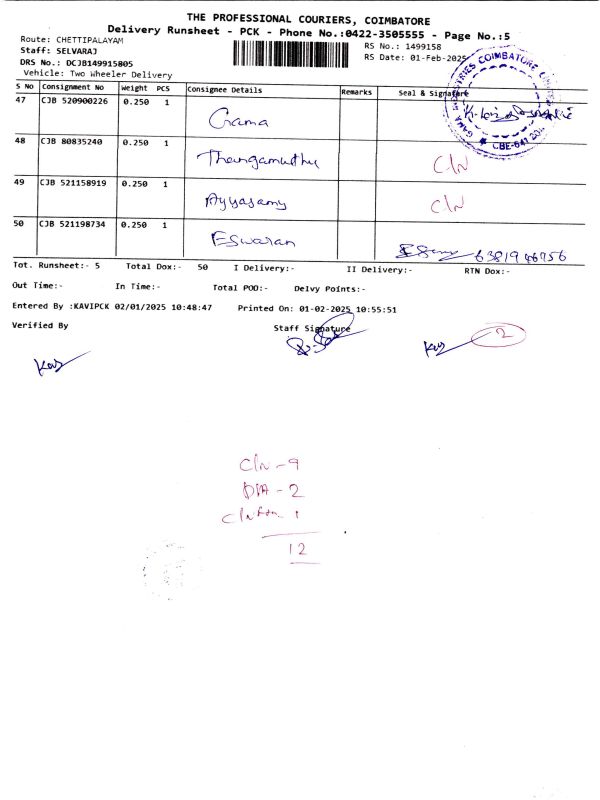 THE PROFESSIONAL COURIERS, COIMBATORE
Delivery Runsheet - PCK - Phone No.:0422-3505555 - Page No.:5
Route: CHETTIPALAYAM
RS No.: 1499158
Staff: SELVARAJ
RS Date: 01-Feb-2025
DRS No.: DCJB149915805
Vehicle: Two Wheeler Delivery
GAMA INDUSTRIES COIMBATORE LIMITED
CBE-641 201
S No Consignment No Weight PCS Consignee Details Remarks Seal & Signature
47 CJB 520900226 0.250 1 Gama
48 CJB 80835240 0.250 1 Thangamuthu C/N
49 CJB 521158919 0.250 1 Ayyasamy C/N
50 CJB 521198734 0.250 1 Eswaran
Tot. Runsheet:- 5 Total Dox:- 50 I Delivery:- II Delivery:- RTN Dox:-
Out Time:- In Time:- Total POD:- Delvy Points:-
Entered By :KAVIPCK 02/01/2025 10:48:47 Printed On: 01-02-2025 10:55:51
Verified By Staff Signature
2
C/N - 9
- 2
12